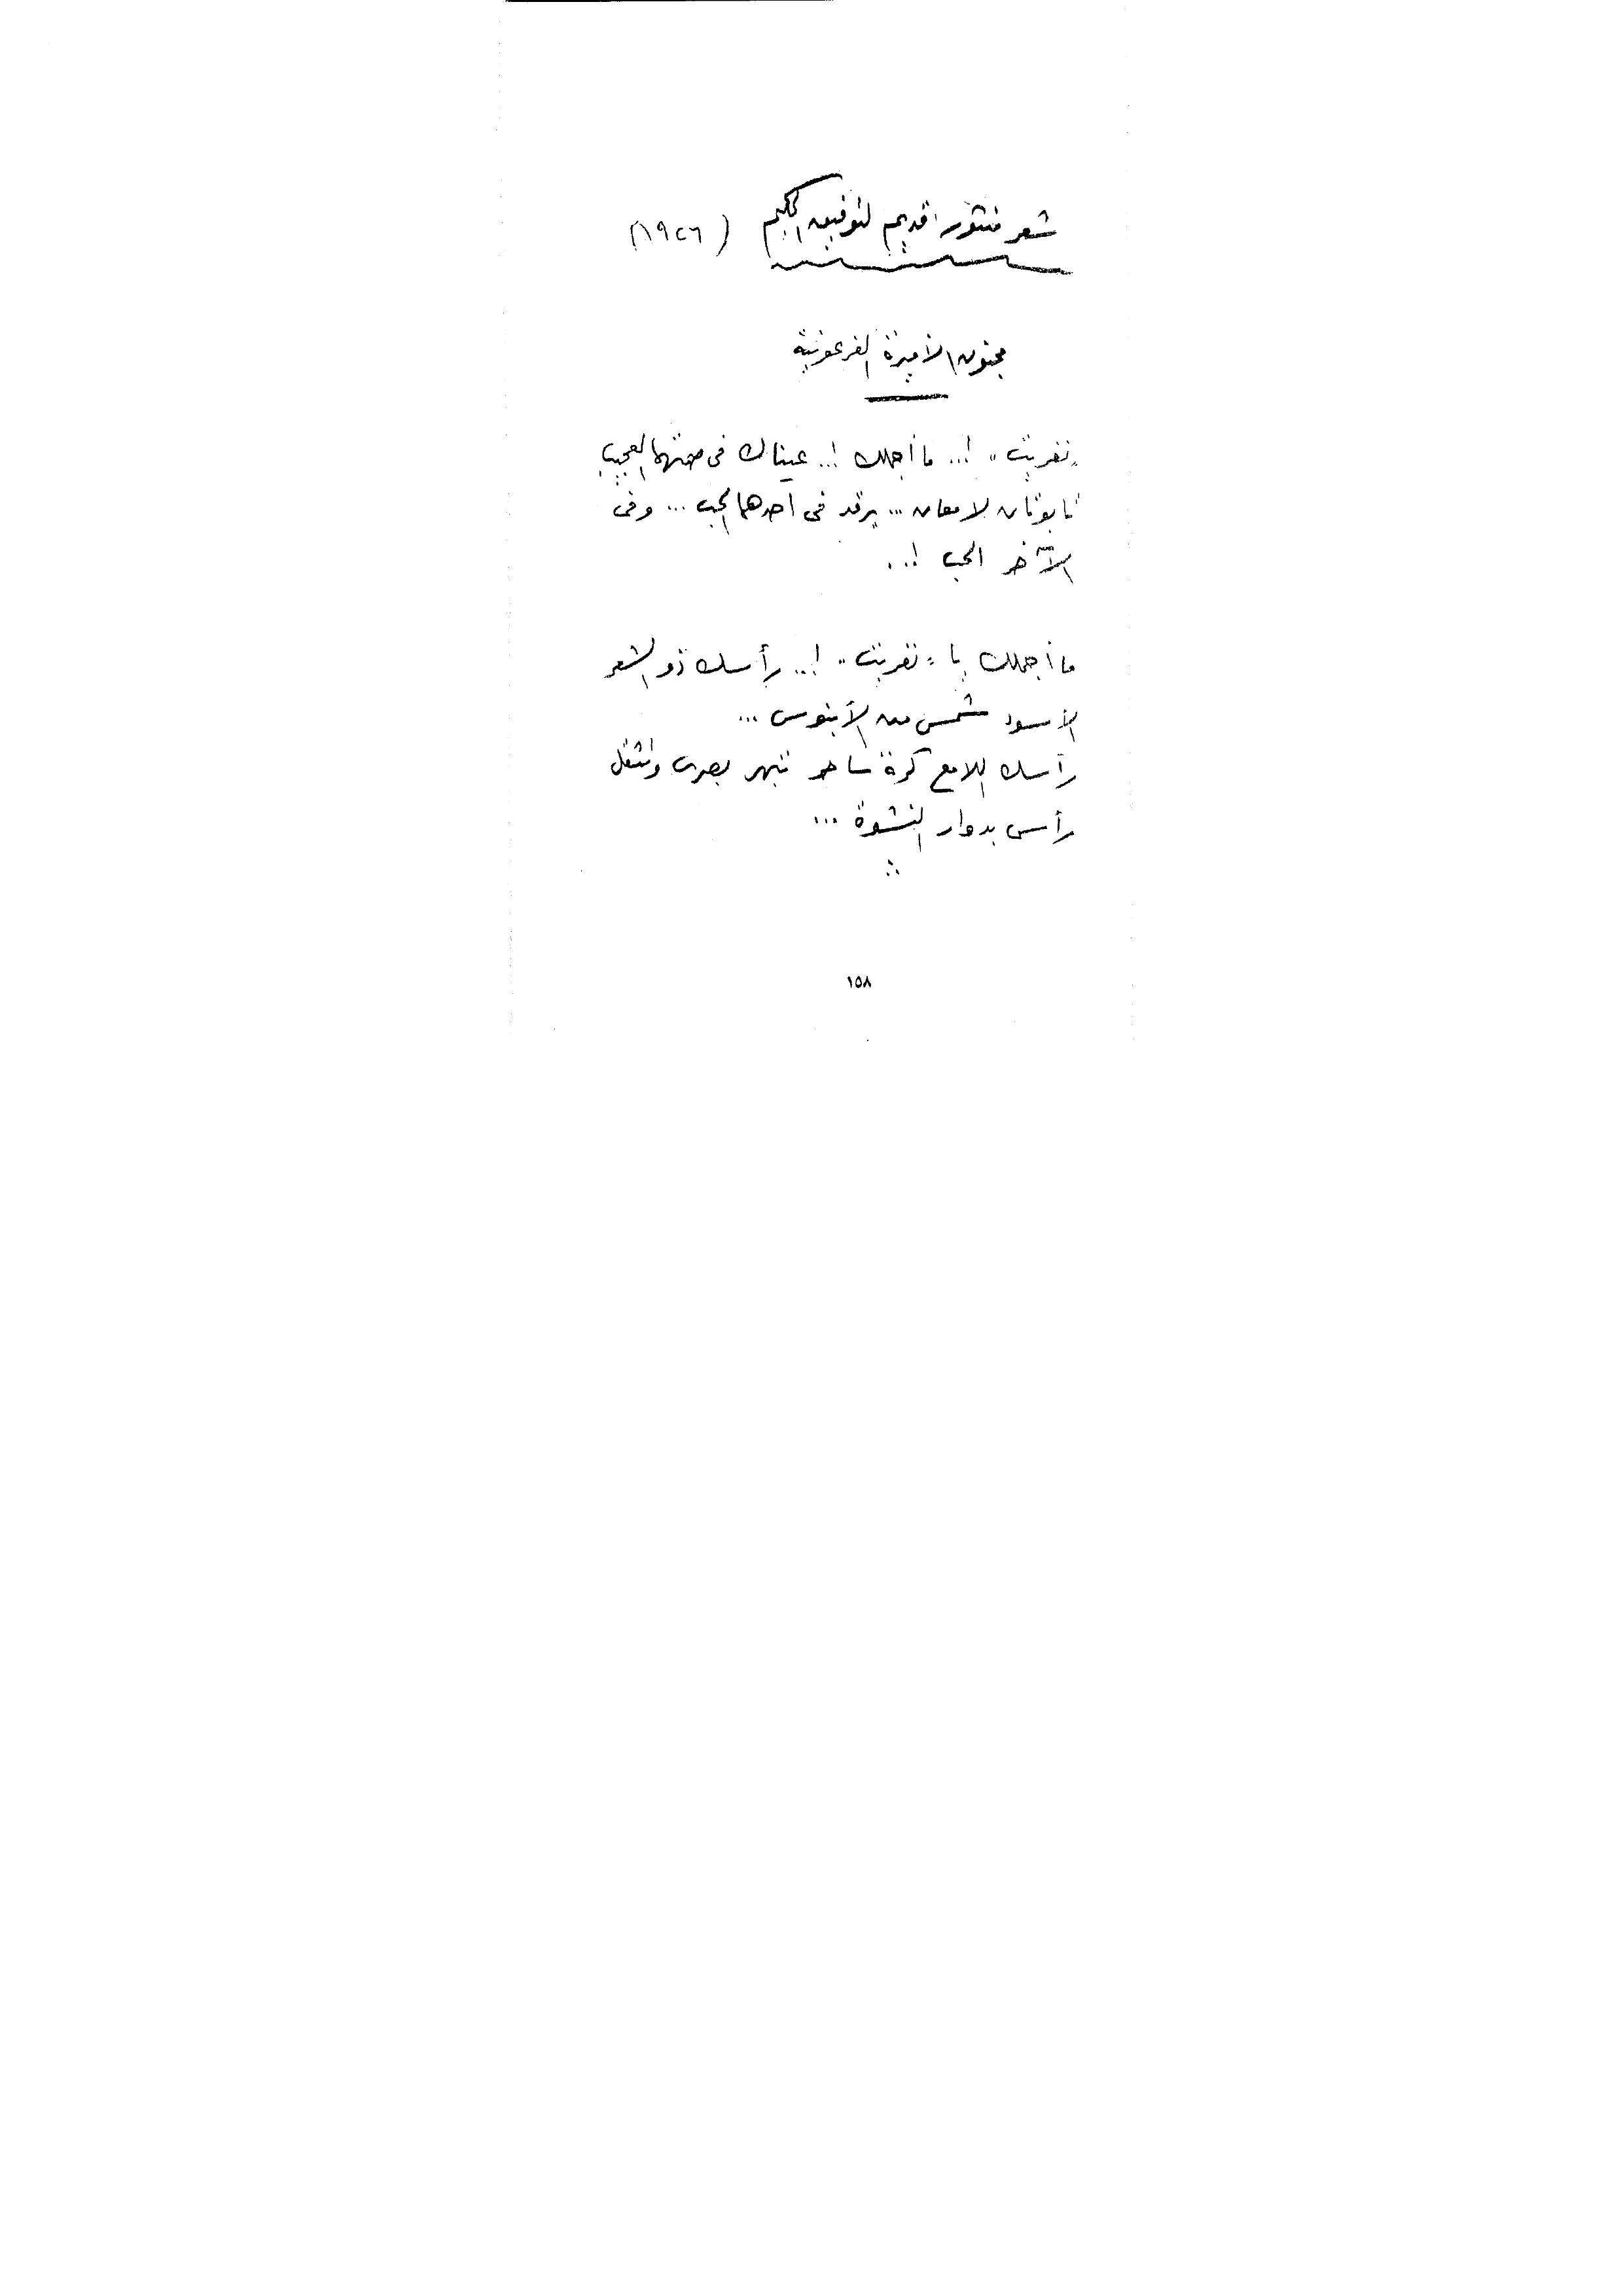 شعر منثور قديم لتوفيق الحكيم (١٩٢٦)
مجنون الأميرة الفرعونية
"نفريت" !.. ما أجملك !.. عيناك فى صمتهما العجيب
تابوتان لامعان ... يرقد فى أحدهما الحب ... وفى
الآخر الحب !..
ما أجملك يا "نفريت" !.. رأسك ذو الشعر
الأسود شمس من الأبنوس ...
رأسك اللامع كرة ساحر تبهر بصرى وتثقل
رأسى بدوار النشوة ...
١٥٨